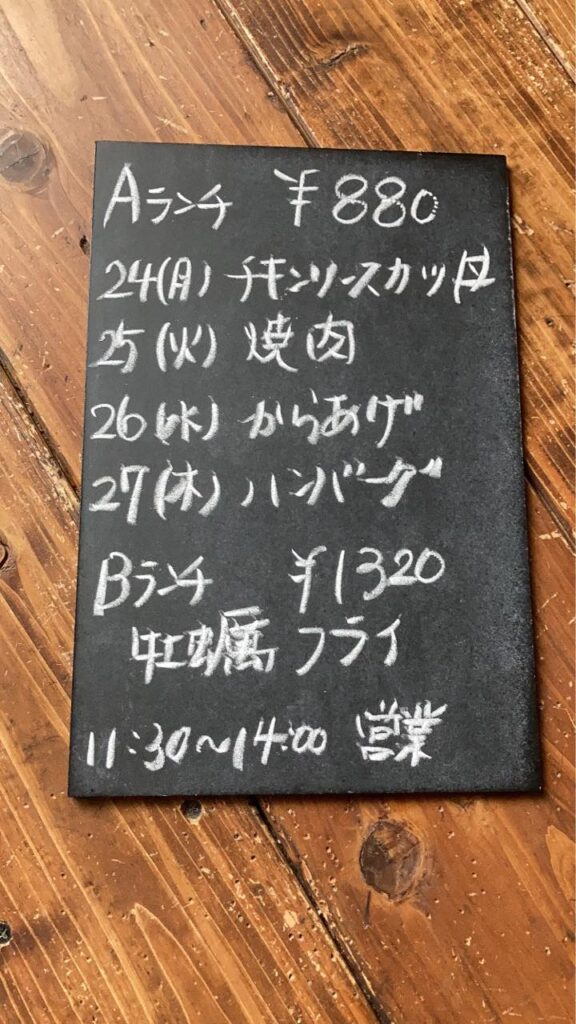 Aランチ ¥880
24(月) チキンソースカツ丼
25(火) 焼肉
26(水) からあげ
27(木) ハンバーグ
Bランチ ¥1320
牡蠣フライ
11:30〜14:00 営業